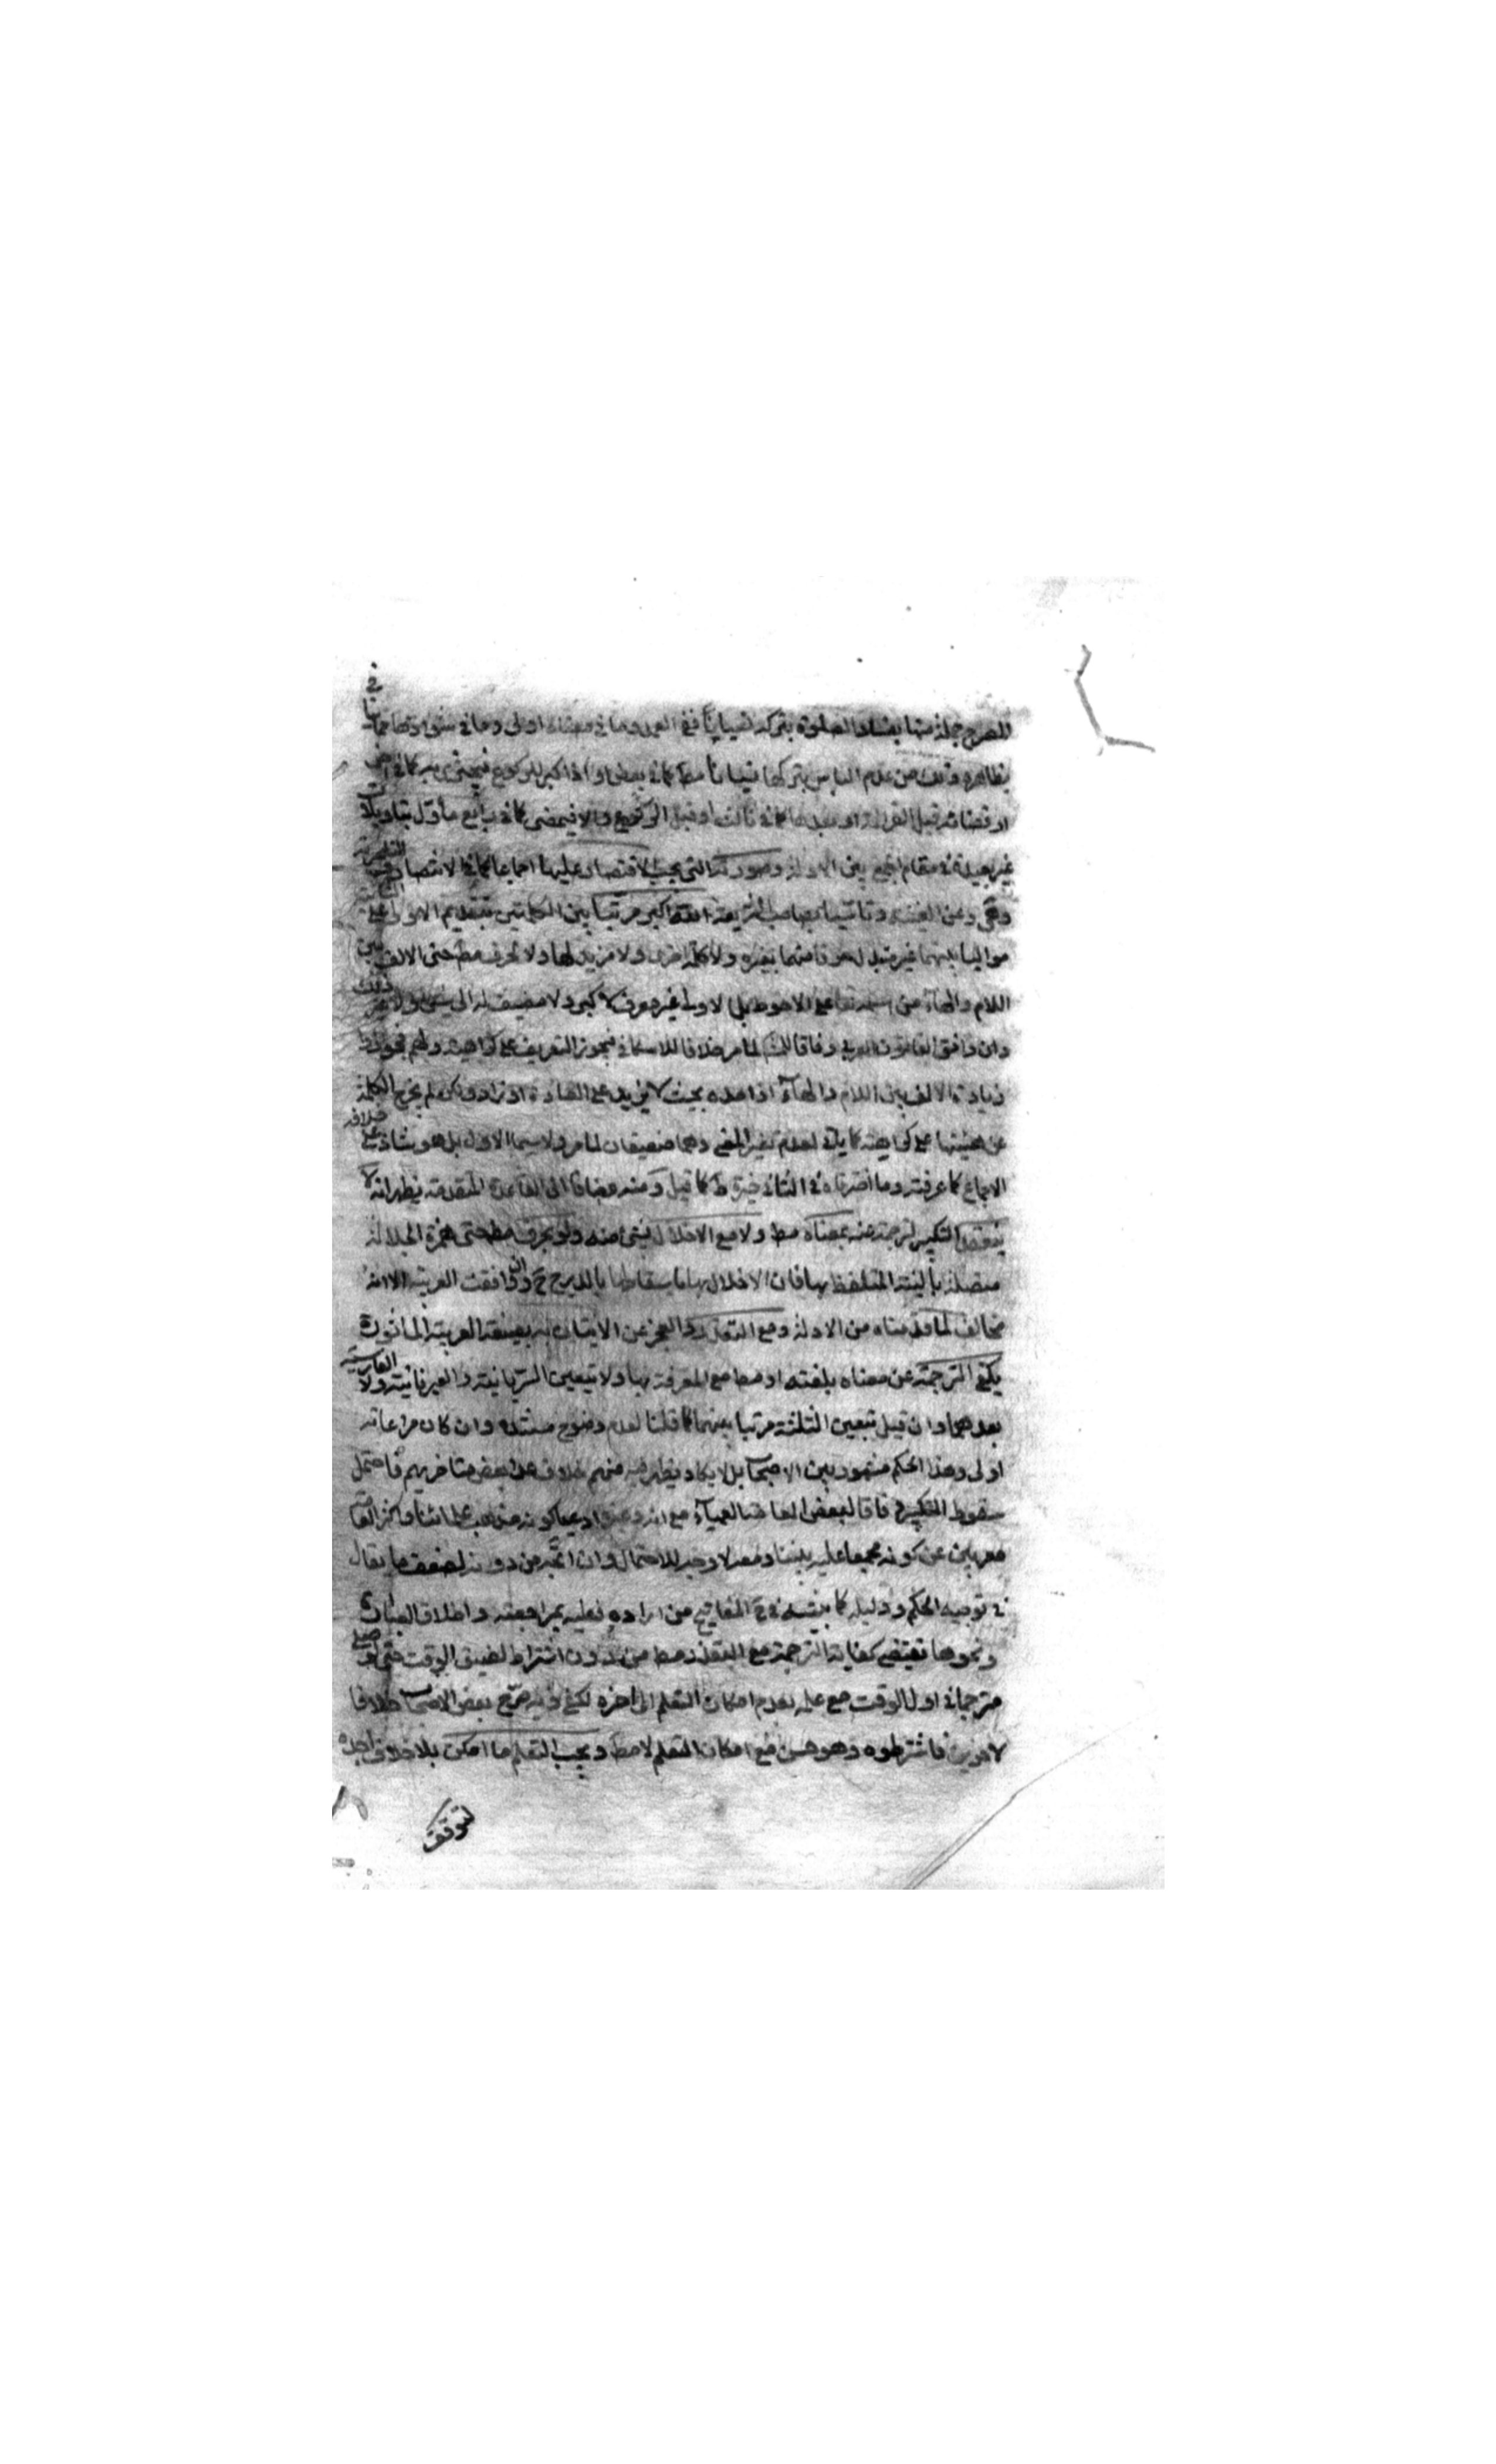 للمصرح جملة منها بفساد الصلوة بتركه نسيانا ففي العمد وما في معناه اولى وما في
بظاهره من عدم الباس بتركها نسيانا مط كما في بعض او اذا كبر للركوع فيجتزى به كما في اخر
او قضائه قبل القراءة او بعدها كما في ثالث او قبل الركوع والا فيمضى كما في رابع مأول بتاويلات
غير بعيدة في مقام الجمع بين الادلة وصورته التى يجب الاقتصار عليها اجماعا كما في الانتصار
وعن الغنية وتاسيا بصاحب الشريعة الله اكبر مرتبا بين الكلمتين بتقديم الاولى على الثانية
مواليا بينهما غير مبدل حرفا منهما بغيره ولا كلمة اخرى ولا مزيد لها ولا لحرف مط حتى الالف بين
اللام والهاء من على الاحوط بل الاولى غير معرف لاكبر ولا مضيف له الى شىء ولا غير ذلك
وان وافق القانون العربي وفاقا لما مر خلافا للاسكافي فيجوز التعريف على كراهية ولهم فجوزوا
زيادة الالف بين اللام والهاء اذا مده بحيث لا يزيد على العادة او زاد ولكن لم يخرج الكلمة
عن هيئتها على كراهية كما ياتى لعدم تغير المعنى وهما ضعيفان لما مر ولا سيما الاول بل هو شاذ على خلافه
الاجماع كما عرفته وما اخترناه في الثاني خيرة كما قيل ومنه مضافا الى القاعدة المتقدمة يظهر انه لا
ينعقد التكبير لترجمة عنه بمعناه مط ولا مع الاخلال بشىء منه ولو بحرف مط حتى همزة الجلالة
متصلة بالنية المتلفظ بها فان الاخلال بها باسقاطها بالدرج ح وان وافقت العربية الا انه
مخالف لما قدمناه من الادلة ومع التعذر والعجز عن الاتيان به بصيغته العربية الماثورة
يكفى الترجمة عن معناه بلغته او مط مع المعرفة بها ولا تتعين السريانية والعبرانية ولا الفارسية
بعدهما وان قيل بتعين الثلثة مرتبا بينهما كما قلنا لعدم وضوح مستنده وان كان مراعاته
اولى وهذا الحكم مشهور بين الاصحاب بل لا يكاد يظهر فيه منهم خلاف عدا بعض متاخريهم فاحتمل
سقوط التكبير وفاقا لبعض العامة مع انه وغيره ادعيا كونه مذهب علمائنا واكثر العامة
معربين عن كونه مجمعا عليه بيننا ومعه لا وجه للاحتمال وان اتجه من دونه لضعف ما يقال
في توجيه الحكم ودليله كما بينته في المفاتيح من اراده فعليه بمراجعته واطلاق العبارة
ونحوها تقتضى كفاية الترجمة مع التعذر مط من دون اشتراط لضيق الوقت حتى لو صلى
مترجما في اول الوقت مع علمه بعدم امكان التعلم الى اخره لكفى وبه صرح بعض الاصحاب خلافا
لاخرين فاشترطوه وهو حسن مع امكان التعلم لا مط ويجب التعلم ما امكن بلا خلاف اجده
لتوقف